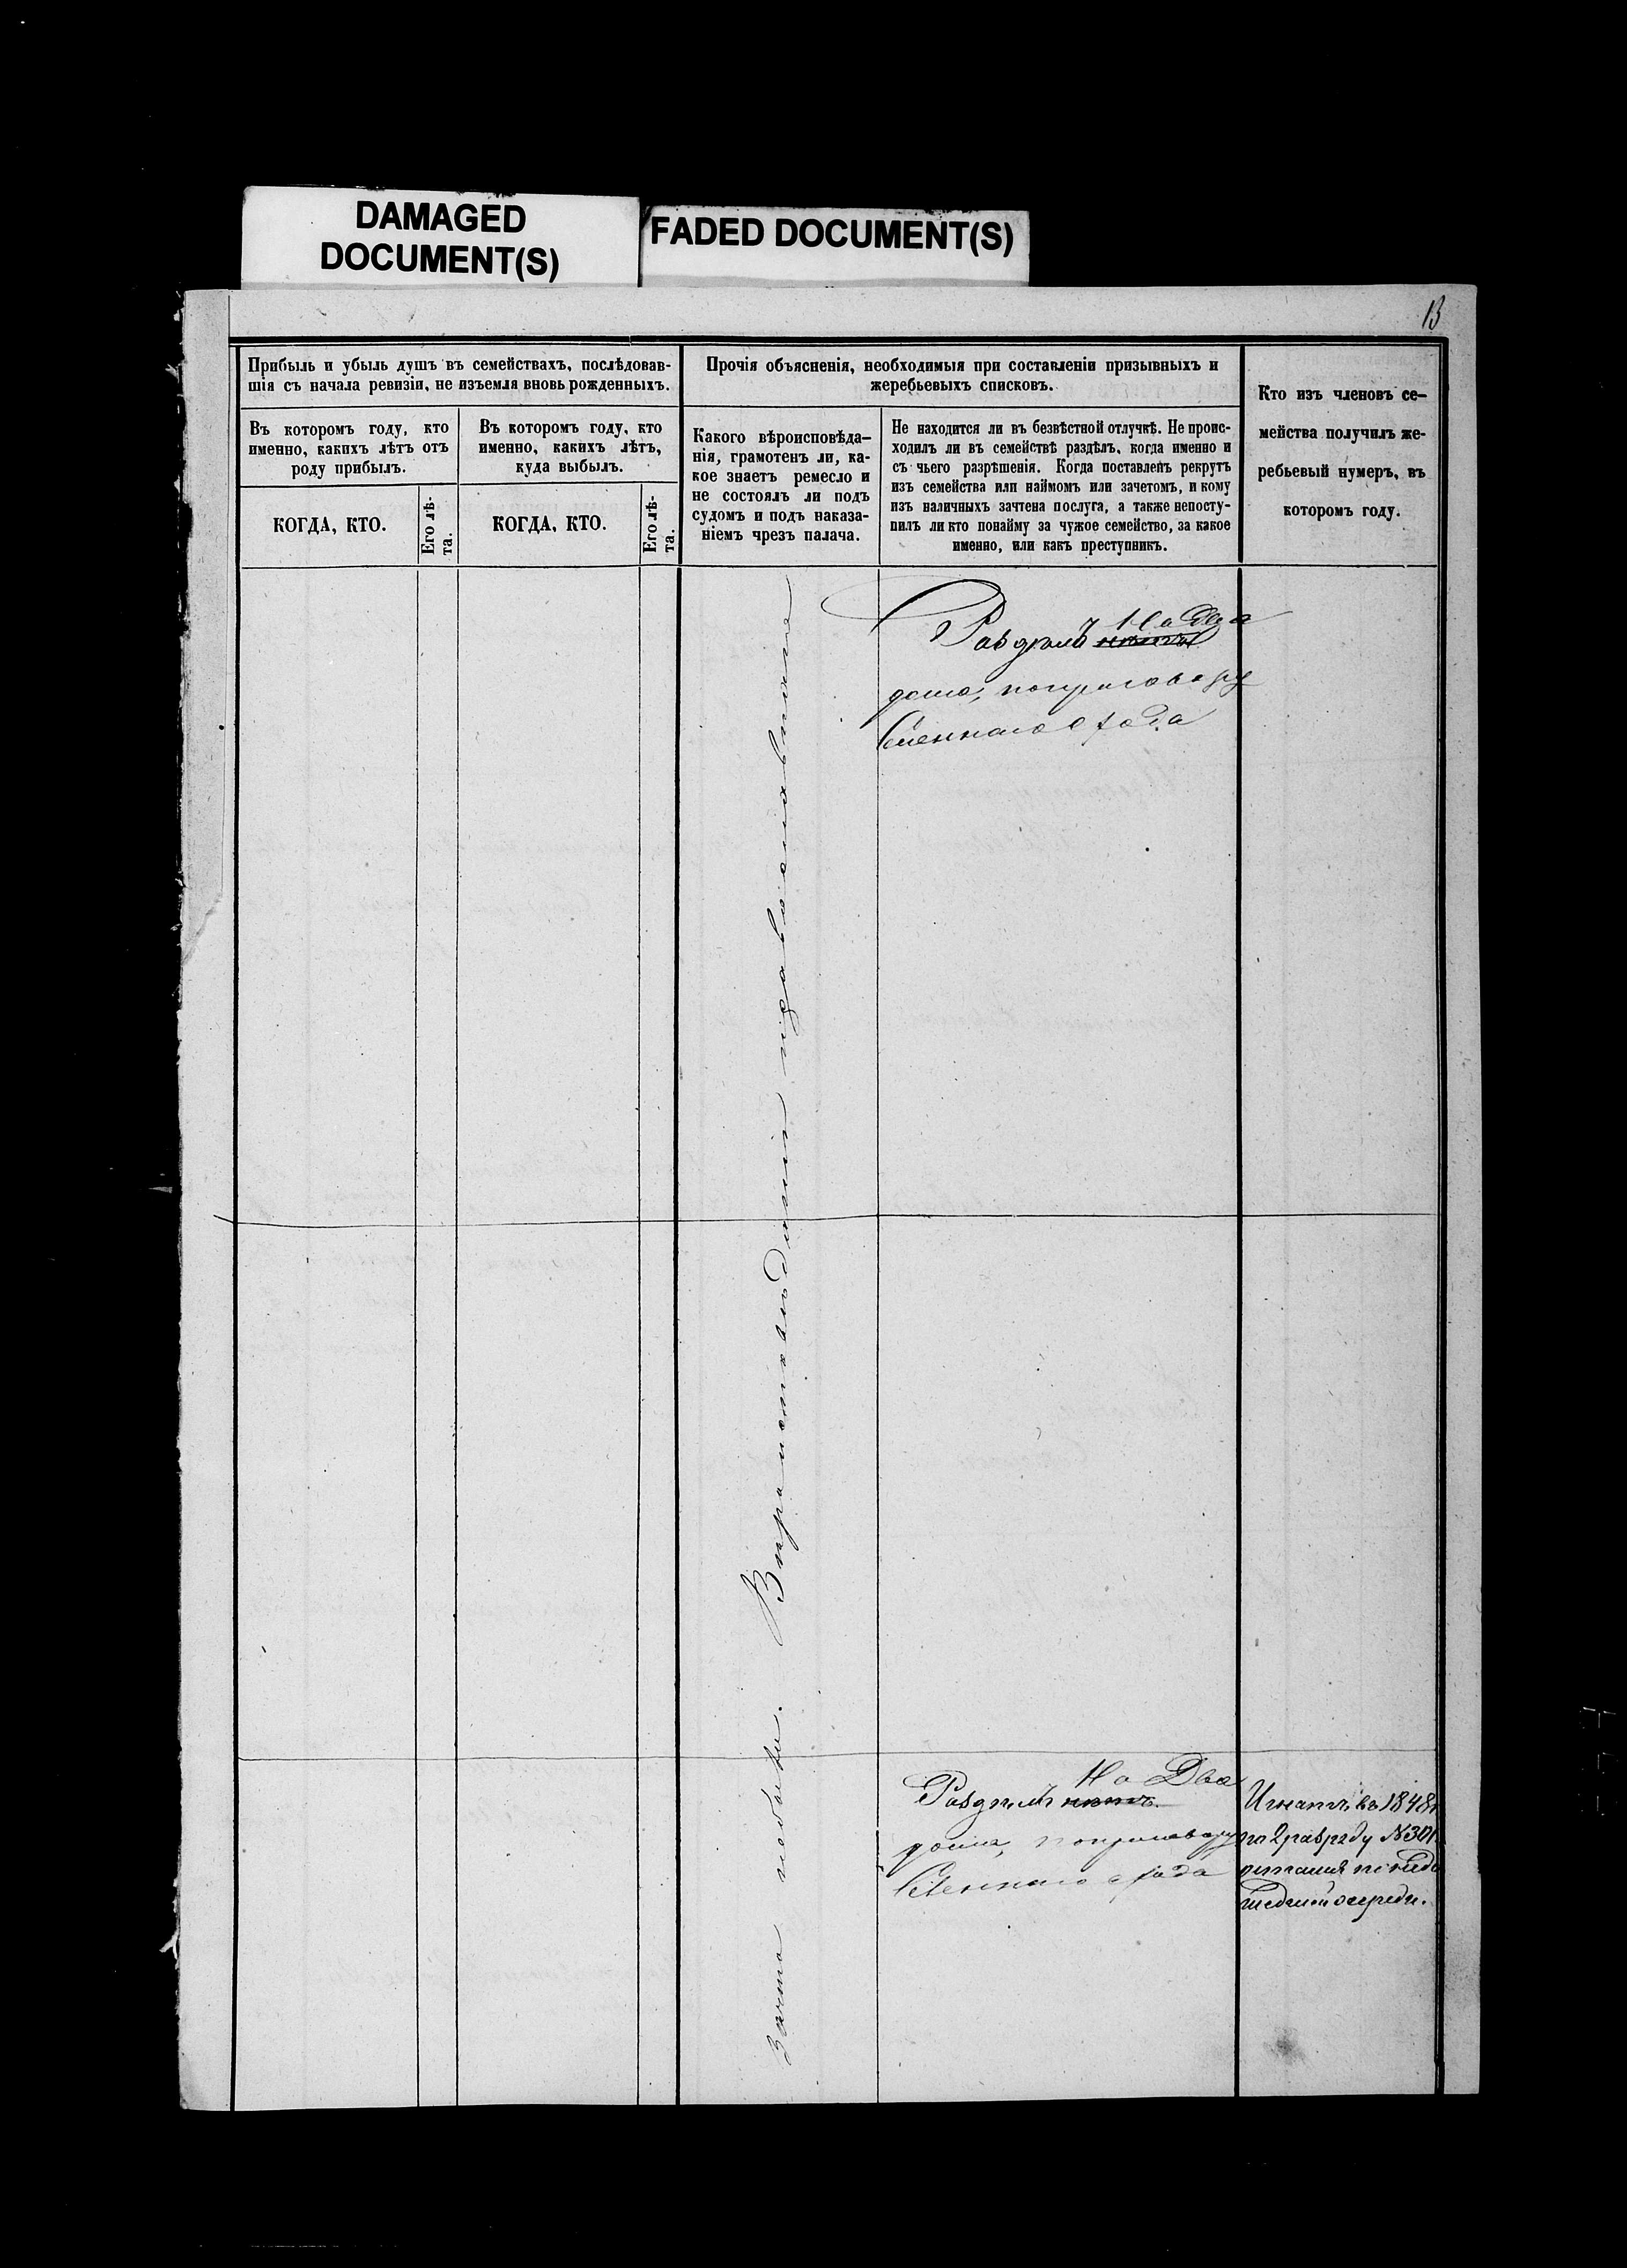 DAMAGED
DOCUMENT(S)
FADED DOCUMENT(S)
13
Прибыль и убыль душъ въ семействахъ, послѣдовав-
шія съ начала ревизіи, не изъемля вновь рожденныхъ.
Въ которомъ году, кто
именно, какихъ лѣтъ отъ
роду прибылъ.
КОГДА, КТО.
Его лѣ-
та.
Въ которомъ году, кто
именно, какихъ лѣтъ,
куда выбылъ.
КОГДА, КТО.
Его лѣ-
та.
Прочія объясненія, необходимыя при составленіи призывныхъ и
жеребьевыхъ списковъ.
Какого вѣроисповѣда-
нія, грамотенъ ли, ка-
кое знаетъ ремесло и
не состоялъ ли подъ
судомъ и подъ наказа-
ніемъ чрезъ палача.
Не находится ли въ безвѣстной отлучкѣ. Не проис-
ходилъ ли въ семействѣ раздѣлъ, когда именно и
съ чьего разрѣшенія. Когда поставленъ рекрутъ
изъ семейства или наймомъ или зачетомъ, и кому
изъ наличныхъ зачтена послуга, а также непосту-
пилъ ли кто понайму за чужое семейство, за какое
именно, или какъ преступникъ.
Кто изъ членовъ се-
мейства получилъ же-
ребьевый нумеръ, въ
которомъ году.
На два
Раздѣлъ нѣтъ
дома, поприговору
Сленнаго схода
Вѣроисповѣданія православнаго
На Два
Раздѣлъ нѣтъ
дома, поприговору
Сленнаго схода
Игнатъ въ 1848
по 2 разряду №301
очереди.